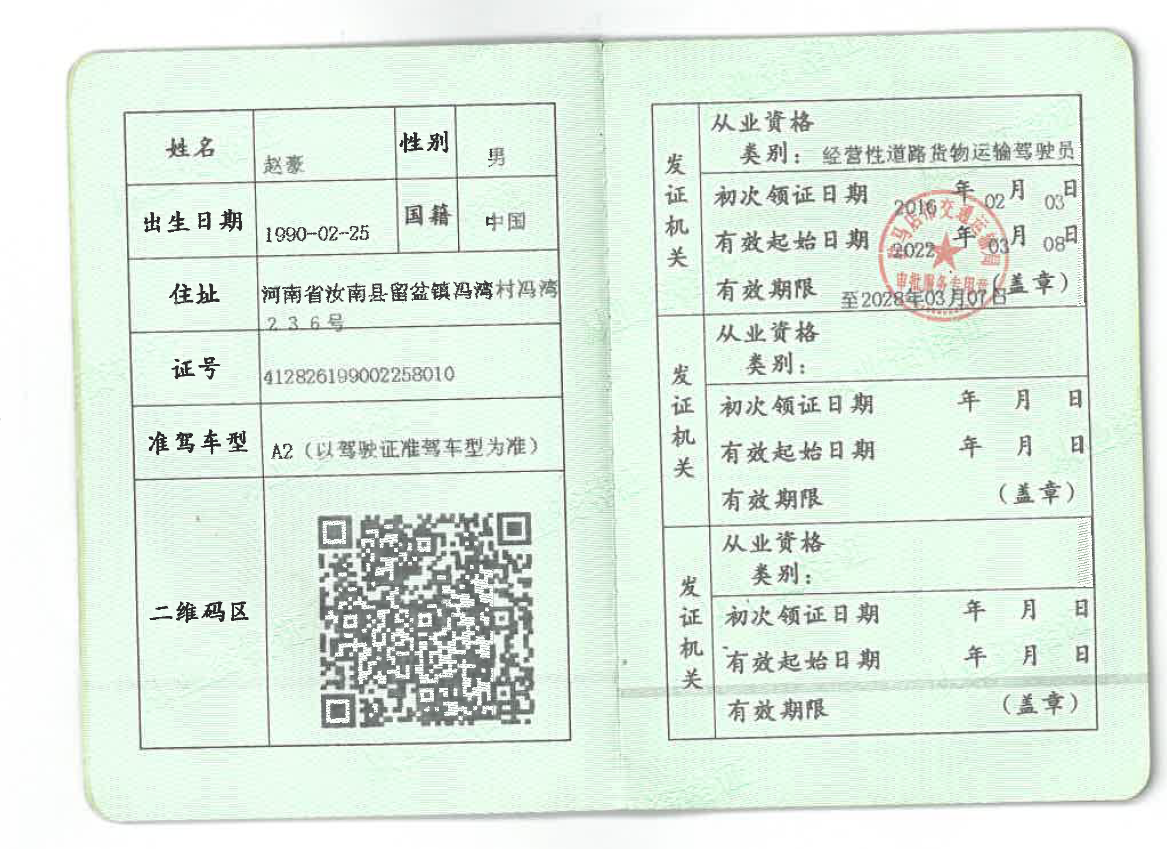 姓名 赵豪 性别 男
出生日期 1990-02-25 国籍 中国
住址 河南省汝南县留盆镇冯湾村冯湾
236号
证号 412826199002258010
准驾车型 A2（以驾驶证准驾车型为准）
二维码区
发证机关
从业资格
类别： 经营性道路货物运输驾驶员
初次领证日期 2016年02月03日
有效起始日期 2022年03月08日
有效期限 至2028年03月07日（盖章）
驻马店市交通运输局
审批服务专用章
发证机关
从业资格
类别：
初次领证日期 年 月 日
有效起始日期 年 月 日
有效期限 （盖章）
发证机关
从业资格
类别：
初次领证日期 年 月 日
有效起始日期 年 月 日
有效期限 （盖章）